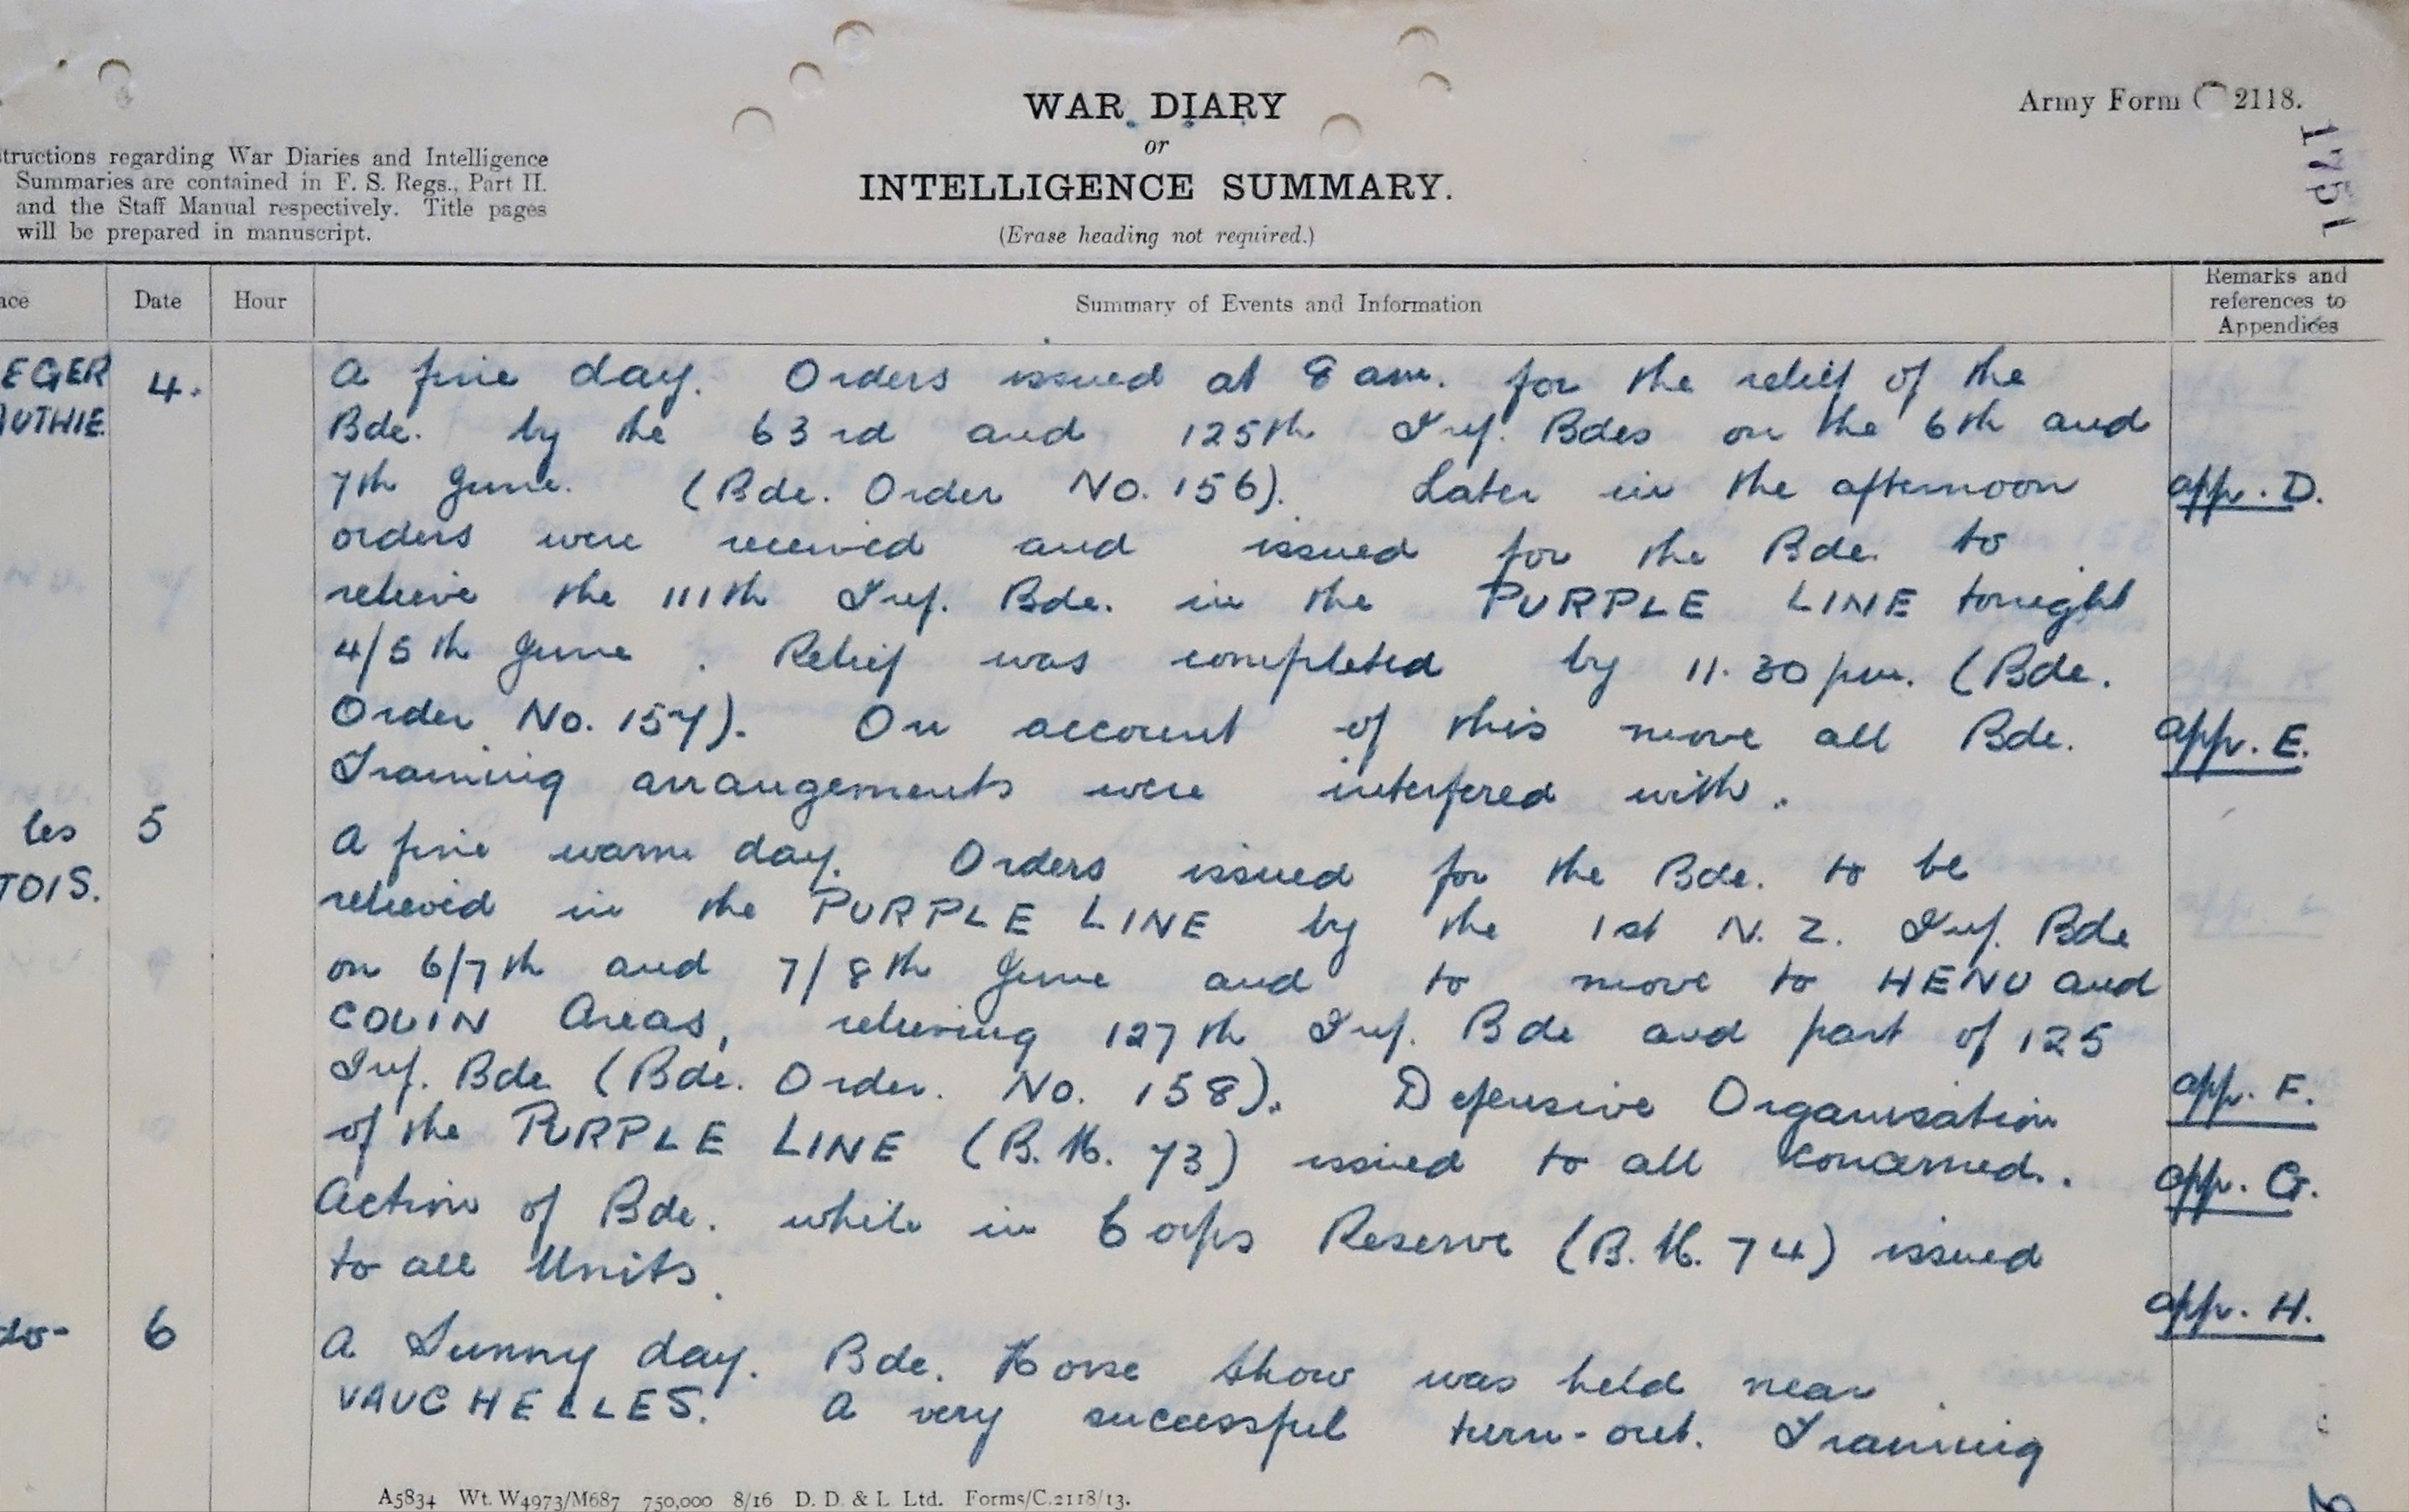 WAR DIARY
Army Form C 2118.
or
INTELLIGENCE SUMMARY.
(Erase heading not required.)
1751
tructions regarding War Diaries and Intelligence
Summaries are contained in F. S. Regs., Part II.
and the Staff Manual respectively. Title pages
will be prepared in manuscript.
ace Date Hour Summary of Events and Information Remarks and references to Appendices
EGER 4. A fine day. Orders issued at 8 am. for the relief of the
AUTHIE Bde. by the 63rd and 125th Inf. Bdes on the 6th and
7th June. (Bde. Order No. 156). Later in the afternoon app. D.
orders were received and issued for the Bde. to
relieve the 111th Inf. Bde. in the PURPLE LINE tonight
4/5th June. Relief was completed by 11.30 pm. (Bde.
Order No. 157). On account of this move all Bde. app. E.
Training arrangements were interfered with.
les 5 A fine warm day. Orders issued for the Bde. to be
TOIS. relieved in the PURPLE LINE by the 1st N. Z. Inf. Bde
on 6/7th and 7/8th June and to move to HENU and
COUIN Areas, relieving 127th Inf. Bde and part of 125
Inf. Bde (Bde. Order. No. 158). Defensive Organisation app. F.
of the PURPLE LINE (B.M. 73) issued to all concerned. app. G.
Action of Bde. while in Corps Reserve (B.M. 74) issued
to all Units. app. H.
do- 6 A Sunny day. Bde. Horse Show was held near
VAUCHELLES. A very successful turn-out. Training
A5834 Wt. W4973/M687 750,000 8/16 D. D. & L. Ltd. Forms/C.2118/13.